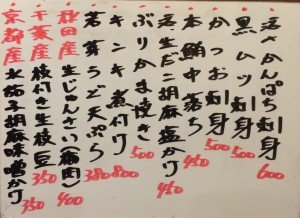 活〆かんぱち刺身 600
黒ムツ刺身 500
かつお刺身 500
本鮪中落ち 450
活生だこ胡麻塩かけ 450
ぶりかま焼き 500
キンキ煮付け 800
うど天ぷら 380
秋田産 生じゅんさい(梅肉) 400
千葉産 枝付き生枝豆 350
京都産 水茄子胡麻味噌かけ 350